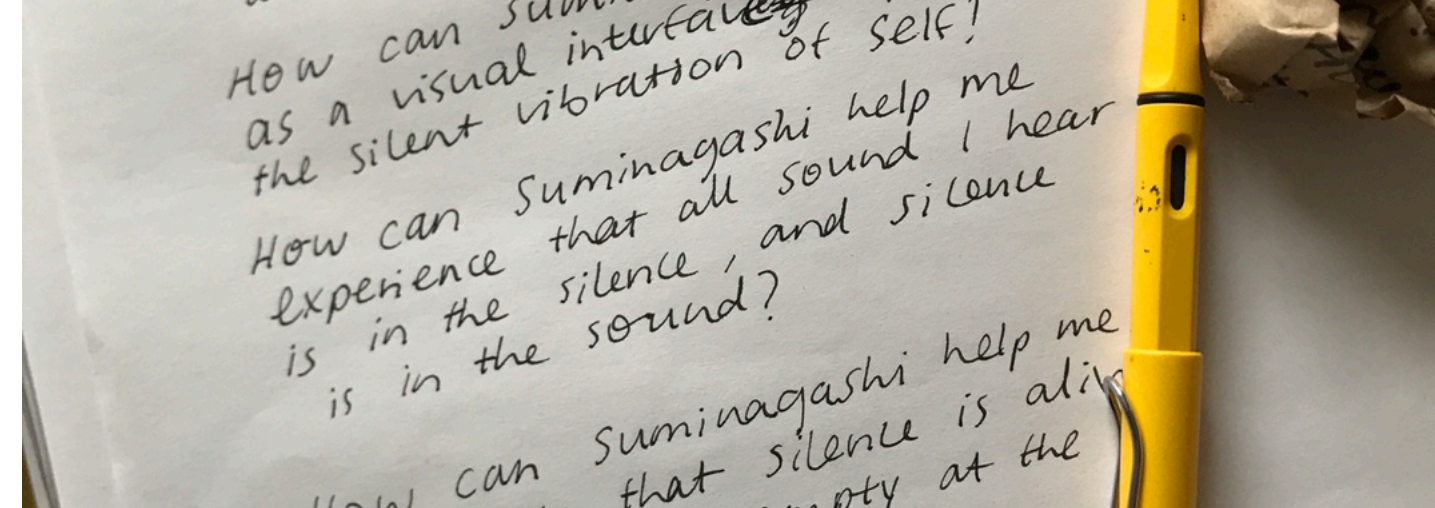 How can
as a visual interface
the silent vibration of self!
How can Suminagashi help me
experience that all sound I hear
is in the silence, and silence
is in the sound?
How can Suminagashi help me
that silence is
at the